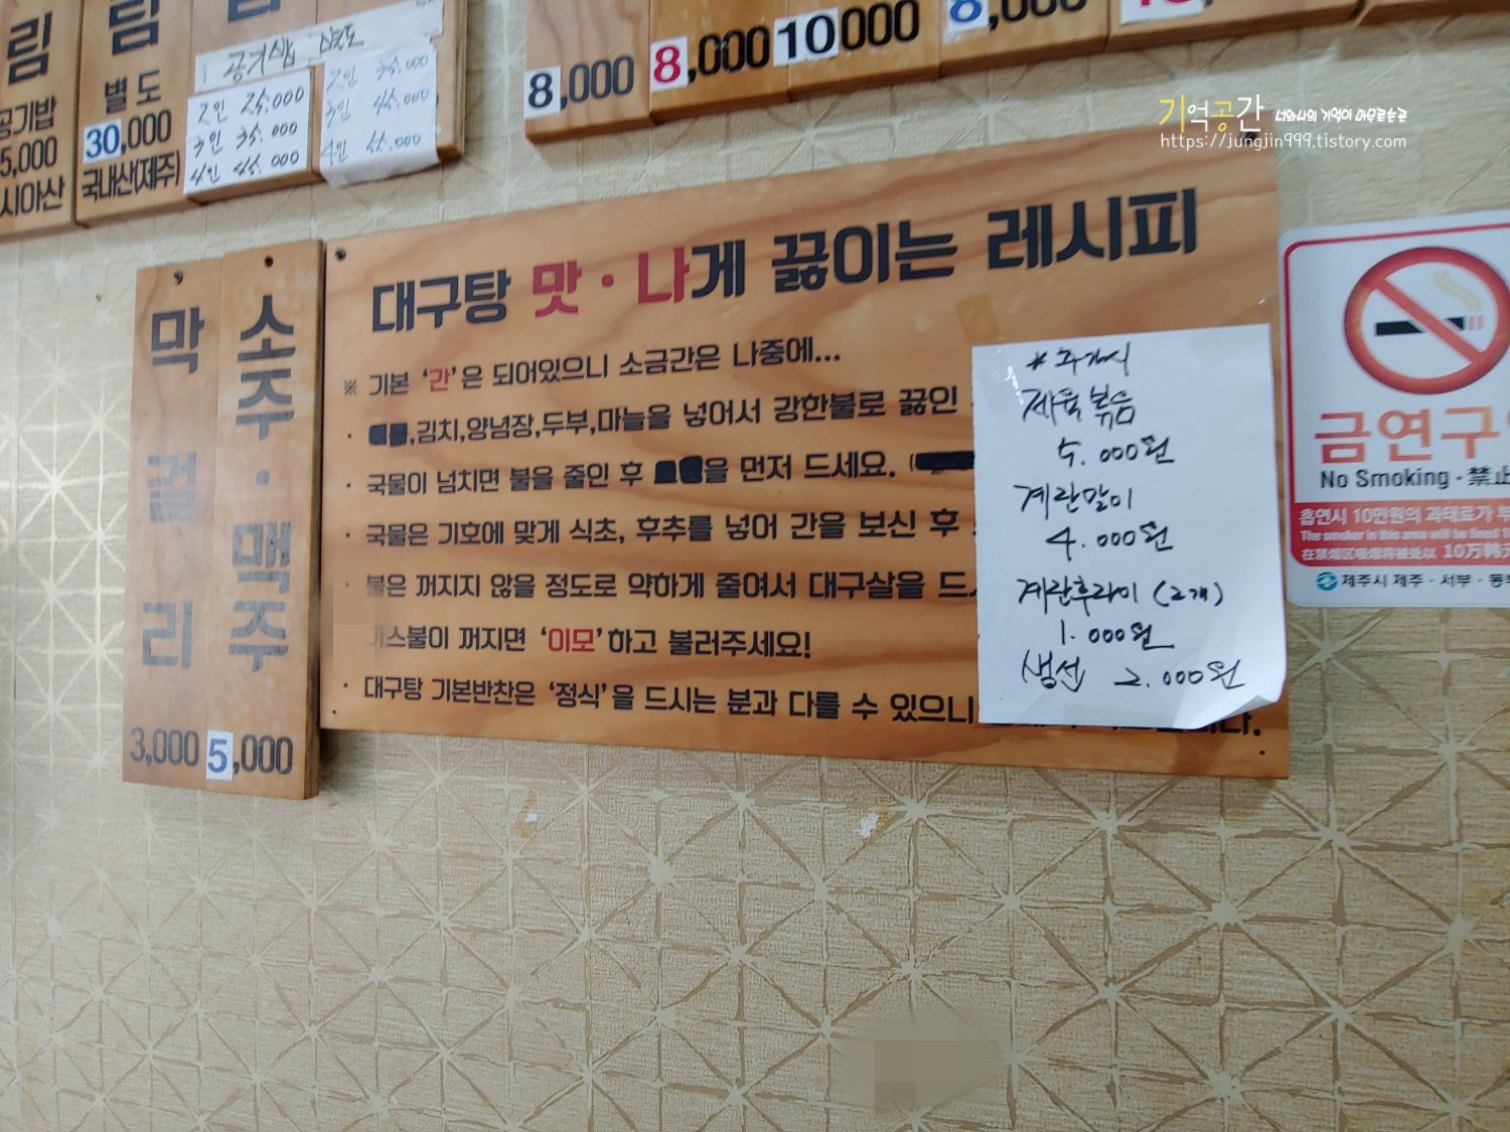 림
공기밥
5,000
시아산
림
별도
30,000
국내산(제주)
공기밥 별도
2인 25,000
3인 35,000
4인 45,000
2인 35,000
3인 45,000
4인 55,000
8,000
8,000
10000
8,000
기억공간 너와나의 기억이 머무르는곳
https://jungjin999.tistory.com
막걸리
3,000
소주·맥주
5,000
대구탕 맛·나게 끓이는 레시피
※ 기본 '간'은 되어있으니 소금간은 나중에...
· ,김치,양념장,두부,마늘을 넣어서 강한불로 끓인
· 국물이 넘치면 불을 줄인 후 을 먼저 드세요. (
· 국물은 기호에 맞게 식초, 후추를 넣어 간을 보신 후
· 불은 꺼지지 않을 정도로 약하게 줄여서 대구살을 드
가스불이 꺼지면 '이모'하고 불러주세요!
· 대구탕 기본반찬은 '정식'을 드시는 분과 다를 수 있으니
# 추가시
제육볶음
5.000원
계란말이
4.000원
계란후라이 (2개)
1.000원
생선 2.000원
금연구
No Smoking · 禁止
흡연시 10만원의 과태료가
The smoker in this area will be fined
10万韩
제주시 제주 · 서부 · 동